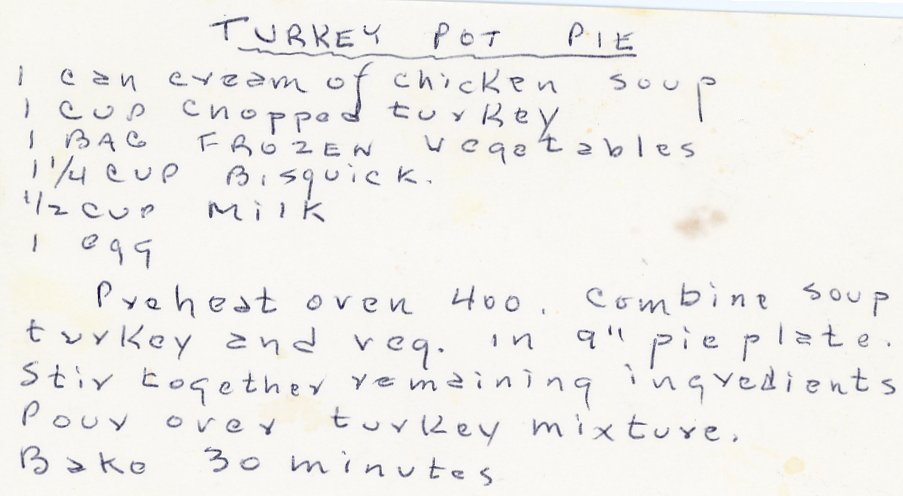 TURKEY POT PIE
1 can cream of chicken soup
1 cup chopped turkey
1 BAG FROZEN vegetables
1 1/4 CUP Bisquick.
1/2 cup Milk
1 egg
Preheat oven 400. Combine soup
turkey and veg. in 9" pie plate.
Stir together remaining ingredients
Pour over turkey mixture.
Bake 30 minutes